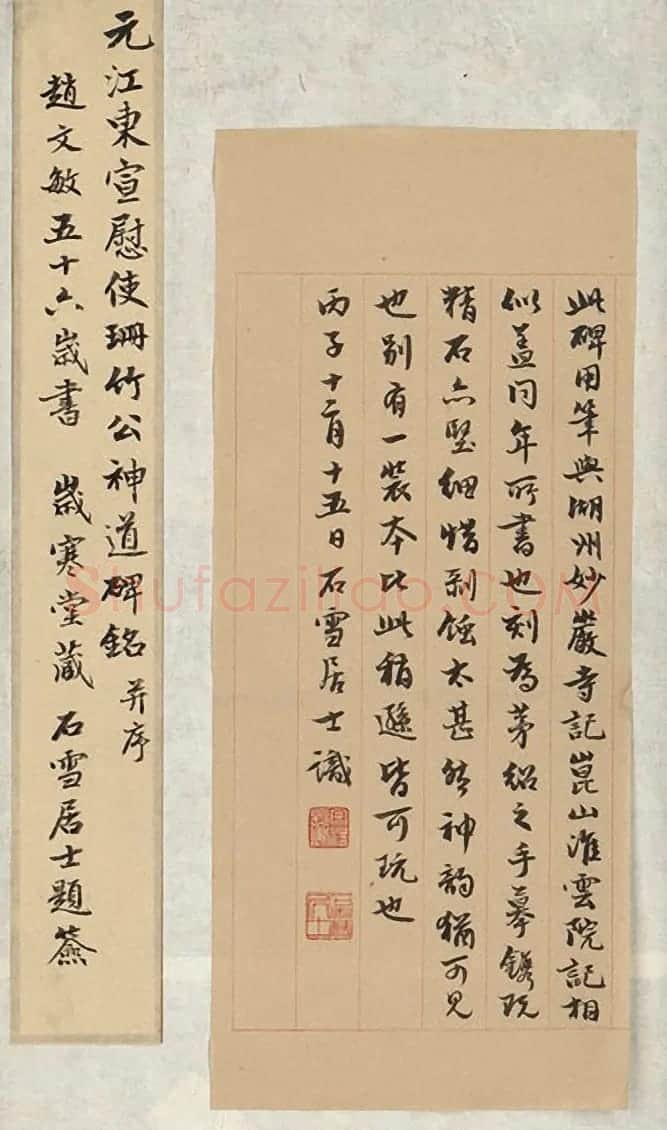 此碑用筆與湖州妙巖寺記崑山淮雲院記相
似蓋同年所書也刻為茅紹之手摹鐫既
精石亦堅細惜剥蝕太甚然神韵猶可見
也别有一裝本比此稍遜皆可玩也
丙子十二月十五日石雪居士識
元江東宣慰使珊竹公神道碑銘并序
趙文敏五十六歲書 歲寒堂藏 石雪居士題簽